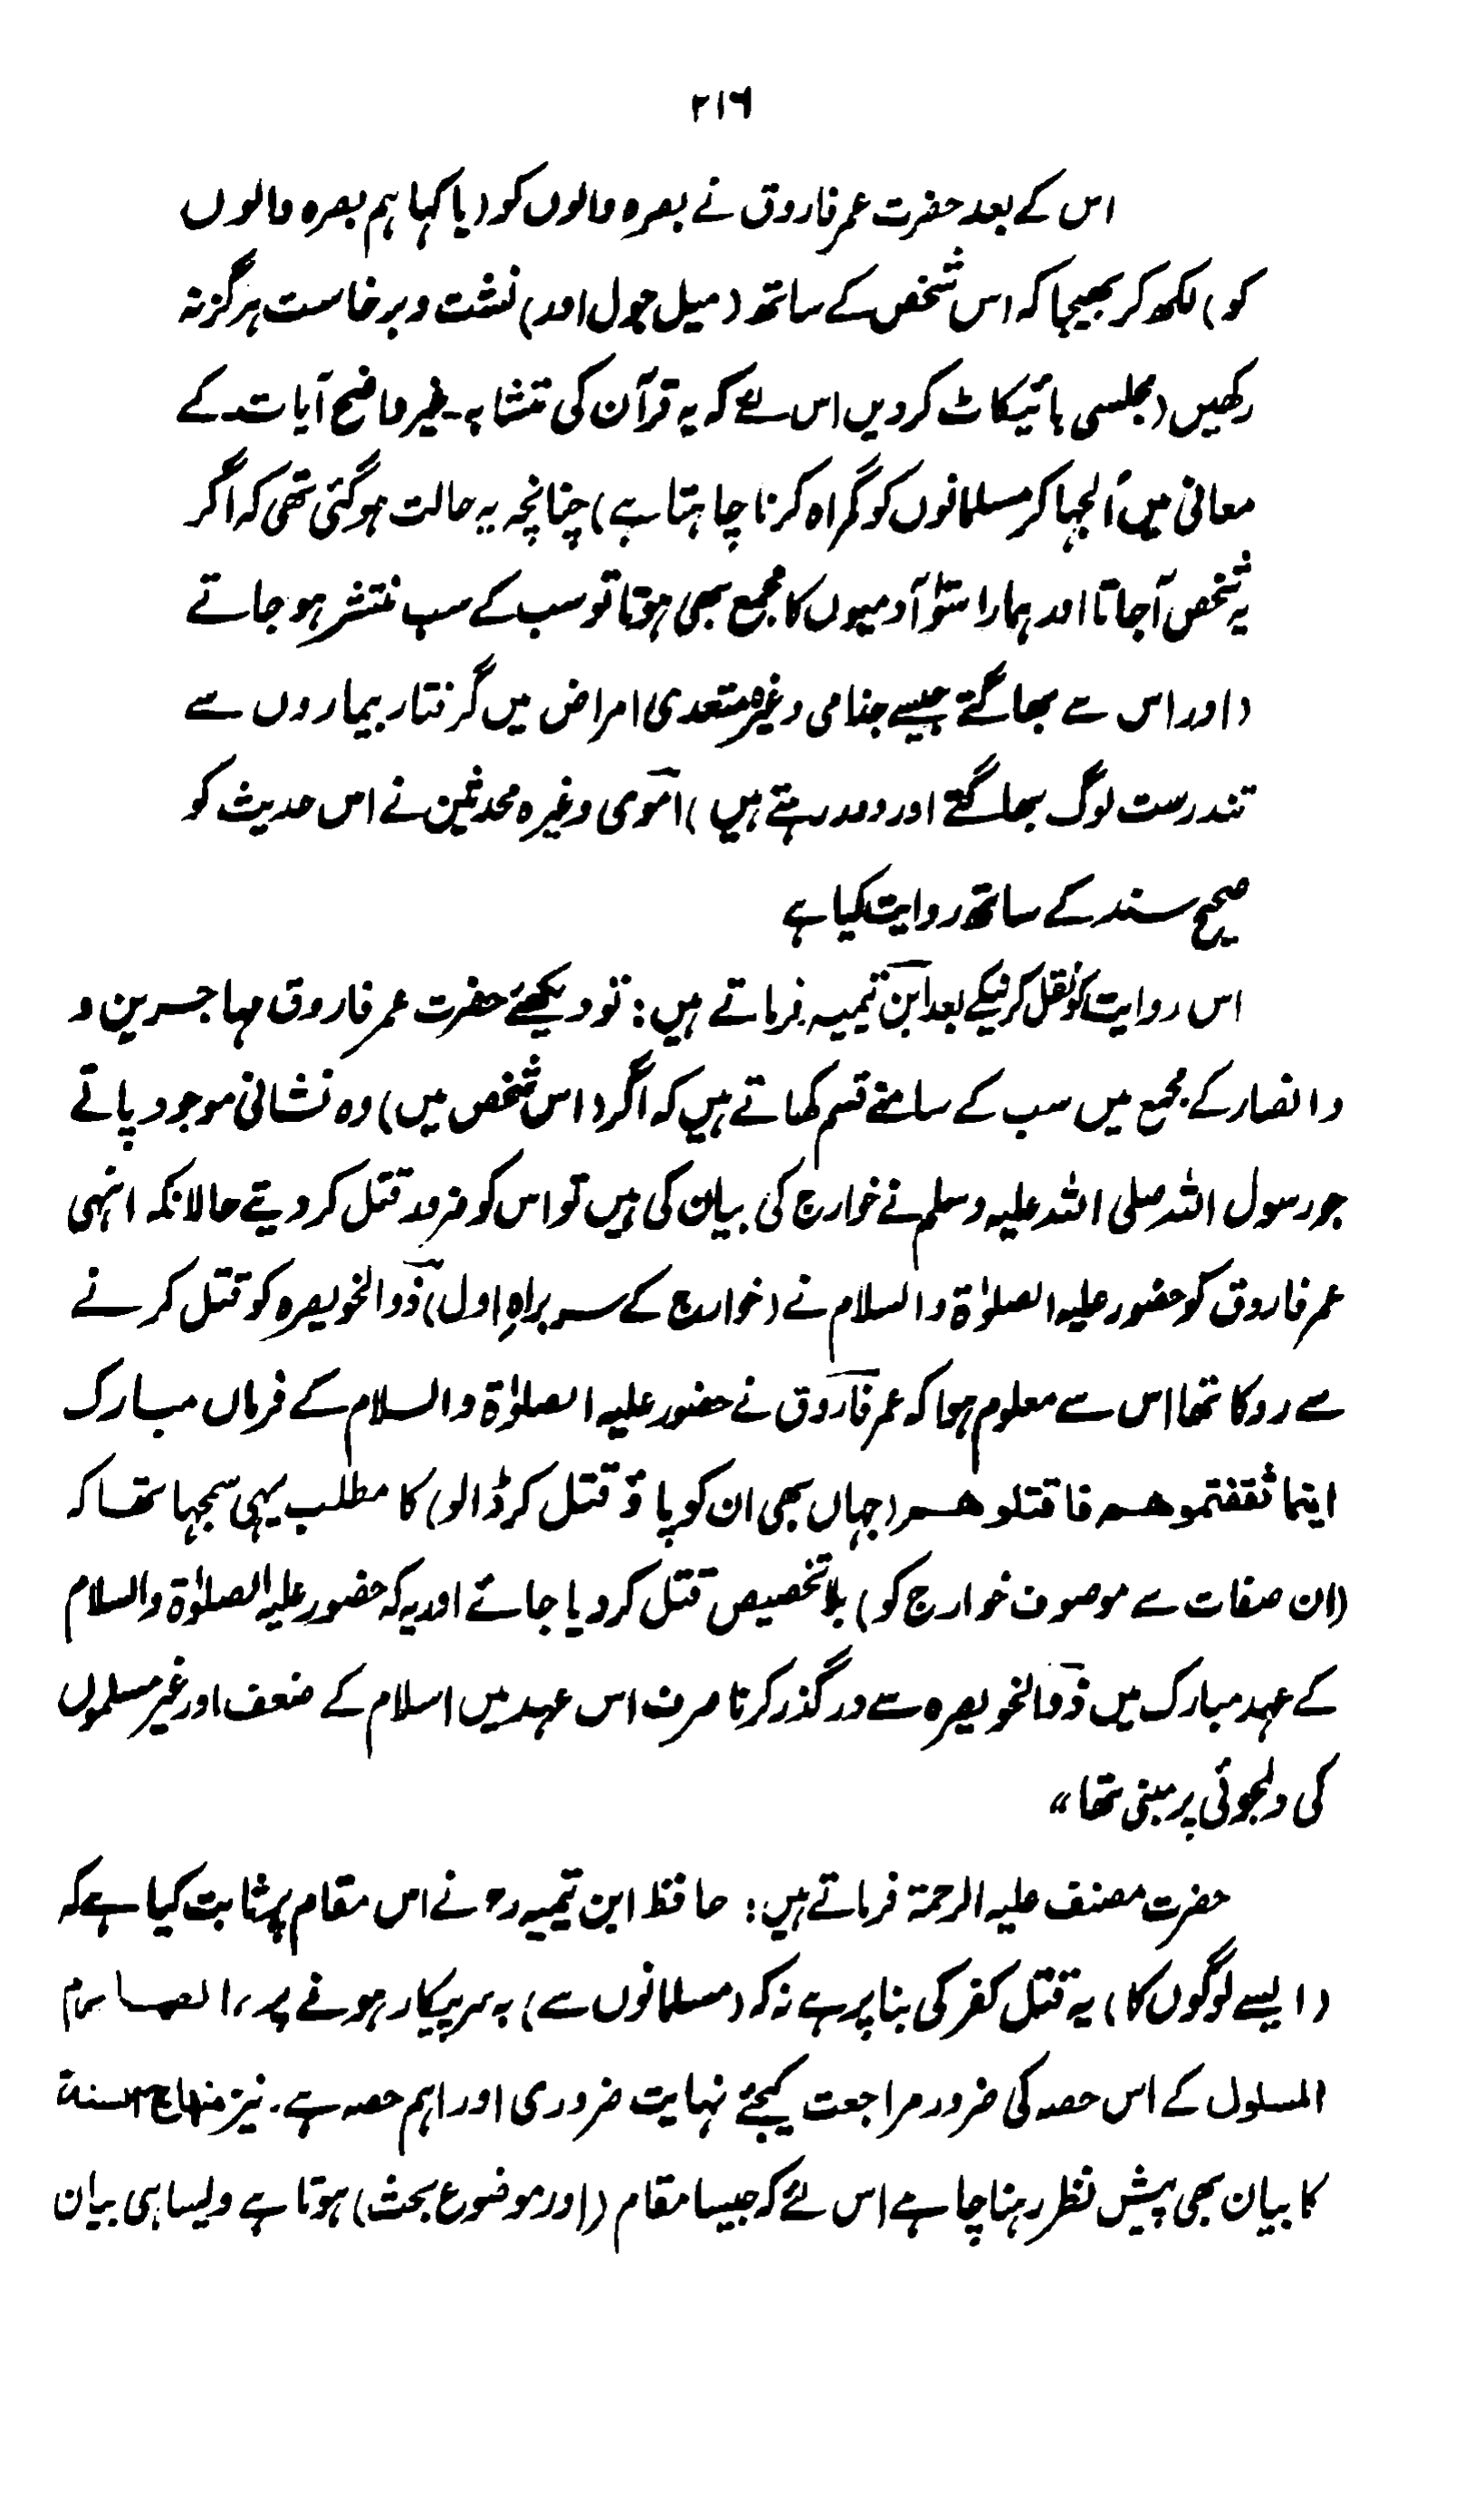 ۲۱۶
اس کے بعد حضرت عمر فاروق نے بصرہ والوں کو (یا کہا ہم بصرہ والوں
کو) لکھ کر بھیجا کہ اس شخص کے ساتھ (میل جول اور) نشت و برخاست ہرگز نہ
رکھیں (مجلسی بائیکاٹ کر دیں اس لئے کہ یہ قرآن کی متشابہ۔ غیر واضح آیات۔ کے
معانی میں اُلجھا کر مسلمانوں کو گمراہ کرنا چاہتا ہے) چنانچہ یہ حالت ہو گئی تھی کہ اگر
یہ شخص آ جاتا اور ہمارا سَو آدمیوں کا مجمع بھی ہوتا تو سب کے سب منتشر ہو جاتے
(اور اس سے بھاگتے جیسے جذامی وغیرہ متعدی امراض میں گرفتار بیماروں سے
تندرست لوگ بھاگتے اور دور رہتے ہیں) اموی وغیرہ محدثین نے اس حدیث کو
صحیح سند کے ساتھ روایت کیا ہے
اس روایت کو نقل کرنیکے بعد ابن تیمیہ فرماتے ہیں: تو دیکھئے حضرت عمر فاروق مہاجرین و
و انصار کے مجمع میں سب کے سامنے قسم کھاتے ہیں کہ اگر (اس شخص میں) وہ نشانی موجود پاتے
جو رسول اللہ صلی اللہ علیہ وسلم نے خوارج کی بیان کی ہیں تو اس کو ضرور قتل کر دیتے حالانکہ انہی
عمر فاروق کو حضور علیہ الصلوٰۃ والسلام نے (خوارج کے سربراہِ اول) ذوالخویصرہ کو قتل کرنے
سے روکا تھا اس سے معلوم ہوا کہ عمر فاروق نے حضور علیہ الصلوٰۃ والسلام کے فرمان مبارک
اینما ثقفتموھم فاقتلوھم (جہاں بھی ان کو پاؤ قتل کر ڈالو) کا مطلب یہی سمجھا تھا کہ
(ان صفات سے موصوف خوارج کو) بلا تخصیص قتل کر دیا جائے اور یہ کہ حضور علیہ الصلوٰۃ والسلام
کے عہد مبارک میں ذوالخویصرہ سے درگذر کرنا صرف اس عہد میں اسلام کے ضعف اور غیر مسلموں
کی دلجوئی پر مبنی تھا"
حضرت مصنف علیہ الرحمۃ فرماتے ہیں: حافظ ابن تیمیہ رح نے اس مقام پر ثابت کیا ہے کہ
(ایسے لوگوں کا) یہ قتل کفر کی بنا پر ہے نہ کہ (مسلمانوں سے) برسرپیکار ہونے پر، الصارم
المسلول کے اس حصہ کی ضرور مراجعت کیجئے نہایت ضروری اور اہم حصہ ہے۔ نیز منہاج السنۃ
کا بیان بھی پیش نظر رہنا چاہے اس لئے کہ جیسا مقام (اور موضوع بحث) ہوتا ہے ویسا ہی بیان